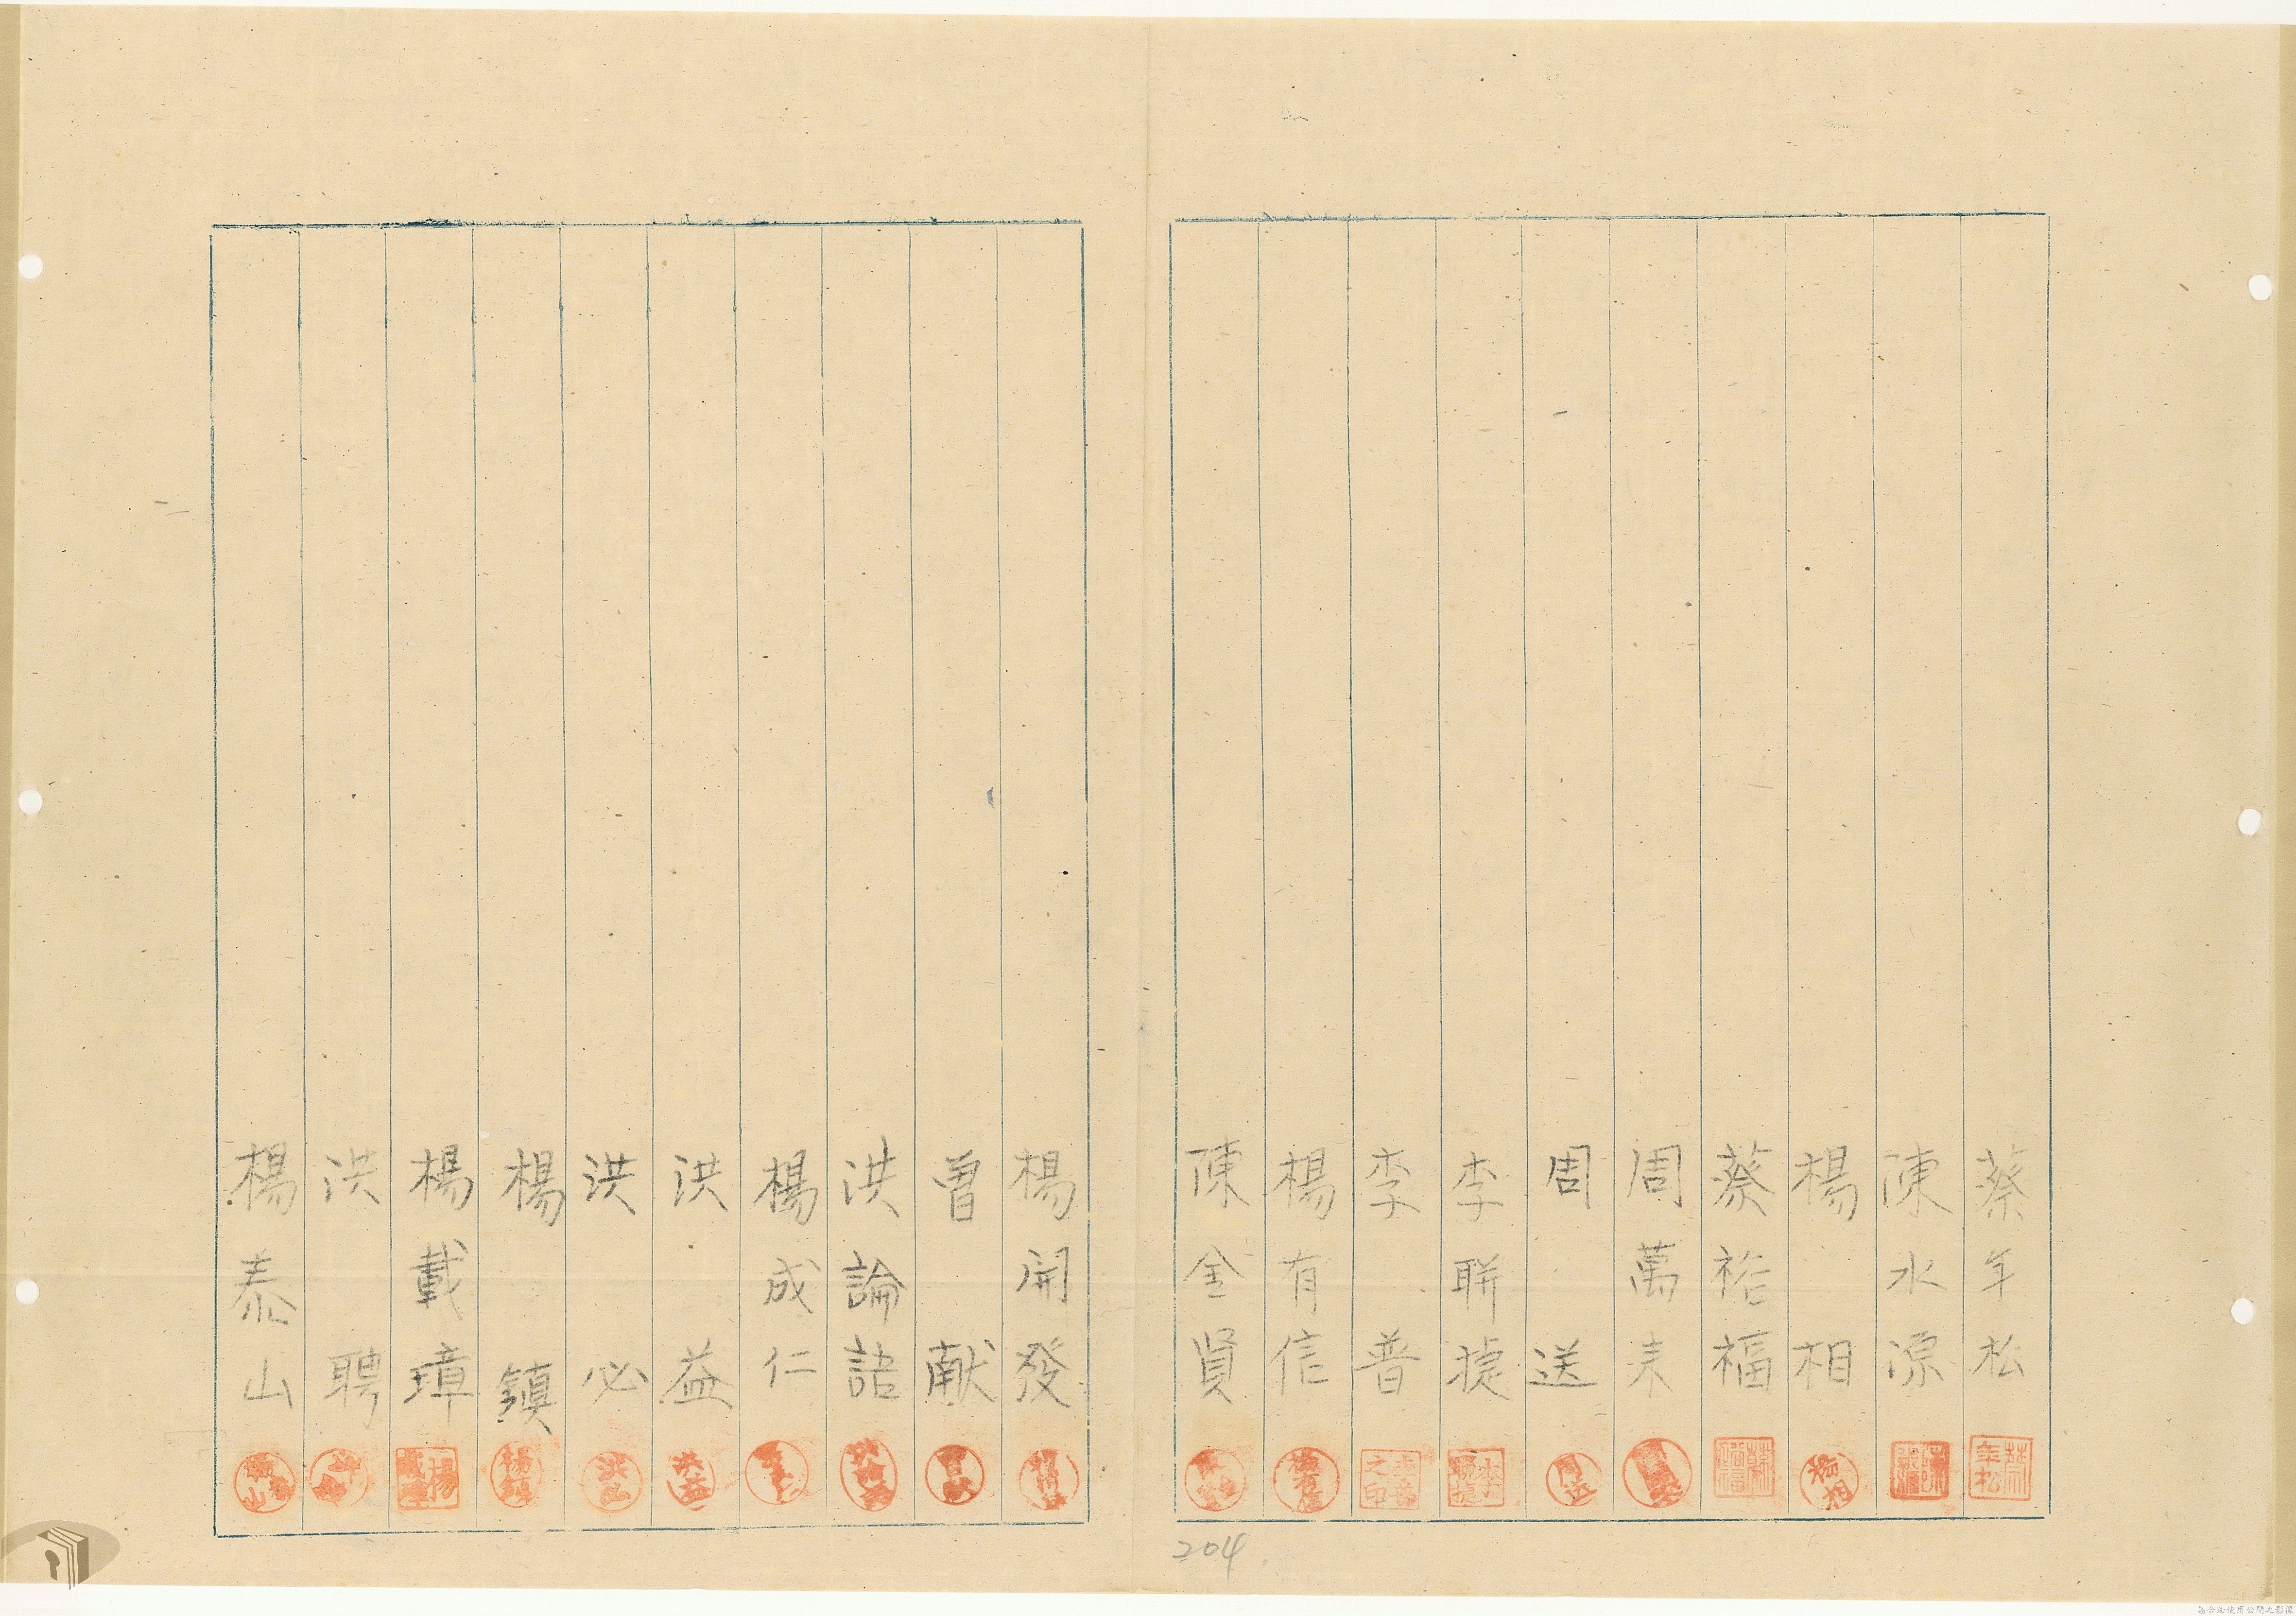 蔡年松
陳水源
楊相
蔡裕福
周萬来
周送
李聯捷
李普
楊有信
陳金賢
楊開發
曽献
洪論語
楊成仁
洪益
洪必
楊鎮
楊載璋
洪聘
楊泰山
204
請合法使用公開之影像